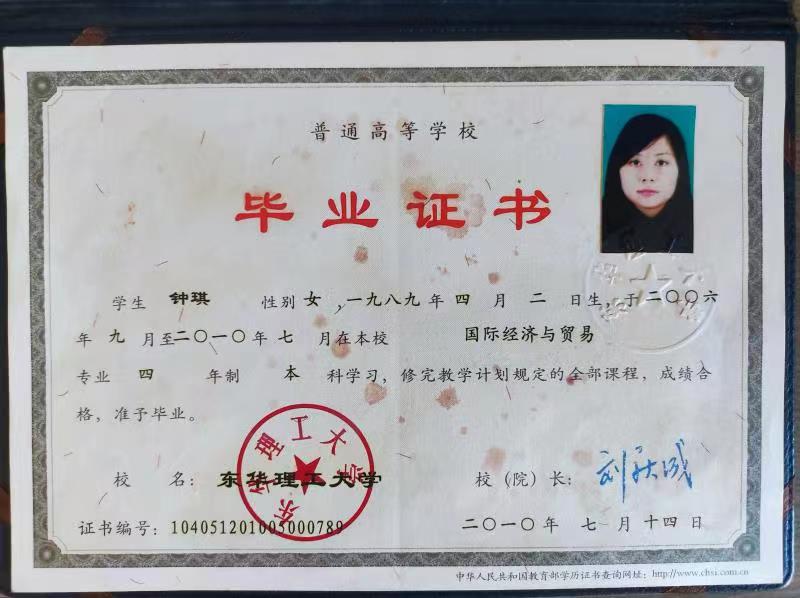 普通高等学校
毕业证书
学生 钟琪 性别 女 ,一九八九 年 四 月 二 日生，于 二〇〇六
年 九 月至 二〇一〇 年 七 月在本校 国际经济与贸易
专业 四 年制 本 科学习，修完教学计划规定的全部课程，成绩合
格，准予毕业。
东华理工大学
校 名： 东华理工大学 校（院）长：
证书编号： 104051201005000789 二〇一〇年 七 月 十四 日
中华人民共和国教育部学历证书查询网址： http://www.chsi.com.cn